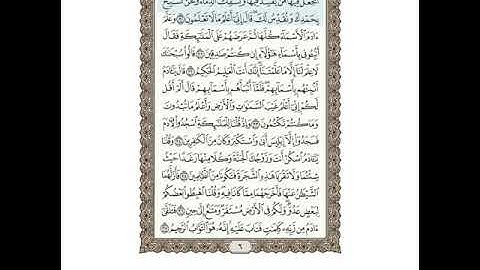 أَتَجْعَلُ فِيهَا مَن يُفْسِدُ فِيهَا وَيَسْفِكُ الدِّمَاءَ وَنَحْنُ نُسَبِّحُ
بِحَمْدِكَ وَنُقَدِّسُ لَكَ قَالَ إِنِّي أَعْلَمُ مَا لَا تَعْلَمُونَ ٣٠ وَعَلَّمَ
ءَادَمَ الْأَسْمَاءَ كُلَّهَا ثُمَّ عَرَضَهُمْ عَلَى الْمَلَٰئِكَةِ فَقَالَ
أَنبِـُٔونِي بِأَسْمَاءِ هَٰؤُلَاءِ إِن كُنتُمْ صَٰدِقِينَ ٣١ قَالُوا سُبْحَٰنَكَ
لَا عِلْمَ لَنَا إِلَّا مَا عَلَّمْتَنَا إِنَّكَ أَنتَ الْعَلِيمُ الْحَكِيمُ ٣٢ قَالَ يَٰٓـَٔادَمُ
أَنبِئْهُم بِأَسْمَائِهِمْ فَلَمَّا أَنبَأَهُم بِأَسْمَائِهِمْ قَالَ أَلَمْ أَقُل
لَّكُمْ إِنِّي أَعْلَمُ غَيْبَ السَّمَٰوَٰتِ وَالْأَرْضِ وَأَعْلَمُ مَا تُبْدُونَ
وَمَا كُنتُمْ تَكْتُمُونَ ٣٣ وَإِذْ قُلْنَا لِلْمَلَٰئِكَةِ اسْجُدُوا لِـَٔادَمَ
فَسَجَدُوا إِلَّا إِبْلِيسَ أَبَىٰ وَاسْتَكْبَرَ وَكَانَ مِنَ الْكَٰفِرِينَ ٣٤ وَقُلْنَا
يَٰٓـَٔادَمُ اسْكُنْ أَنتَ وَزَوْجُكَ الْجَنَّةَ وَكُلَا مِنْهَا رَغَدًا حَيْثُ
شِئْتُمَا وَلَا تَقْرَبَا هَٰذِهِ الشَّجَرَةَ فَتَكُونَا مِنَ الظَّٰلِمِينَ ٣٥ فَأَزَلَّهُمَا
الشَّيْطَٰنُ عَنْهَا فَأَخْرَجَهُمَا مِمَّا كَانَا فِيهِ وَقُلْنَا اهْبِطُوا بَعْضُكُمْ
لِبَعْضٍ عَدُوٌّ وَلَكُمْ فِي الْأَرْضِ مُسْتَقَرٌّ وَمَتَٰعٌ إِلَىٰ حِينٍ ٣٦ فَتَلَقَّىٰ
ءَادَمُ مِن رَّبِّهِ كَلِمَٰتٍ فَتَابَ عَلَيْهِ إِنَّهُ هُوَ التَّوَّابُ الرَّحِيمُ ٣٧
٦